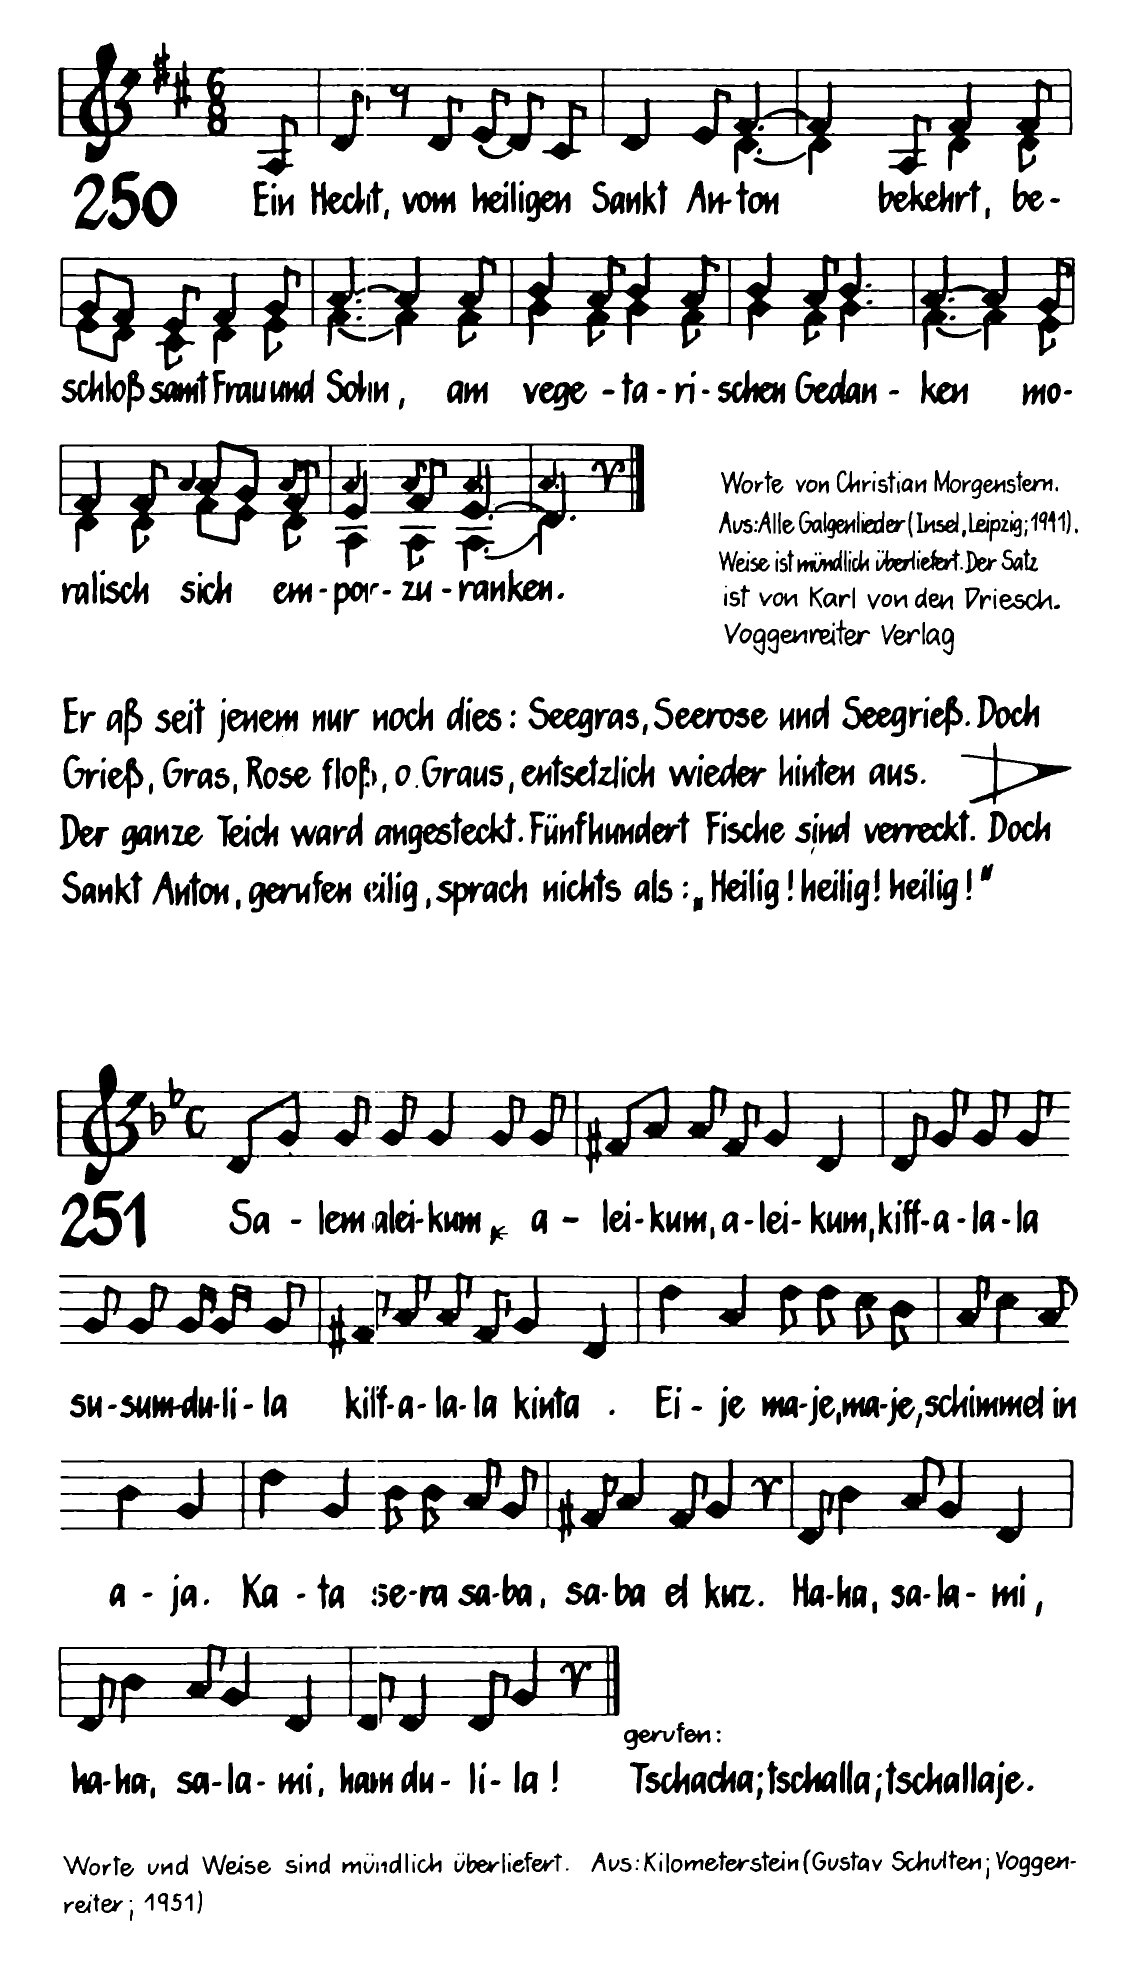 250
Ein Hecht, vom heiligen Sankt An-ton bekehrt, be-
schloß samt Frau und Sohn, am vege-ta-ri-schen Gedan-ken mo-
ralisch sich em-por-zu-ranken.
Worte von Christian Morgenstern.
Aus: Alle Galgenlieder (Insel, Leipzig; 1941).
Weise ist mündlich überliefert. Der Satz
ist von Karl von den Driesch.
Voggenreiter Verlag
Er aß seit jenem nur noch dies: Seegras, Seerose und Seegrieß. Doch
Grieß, Gras, Rose floß, o Graus, entsetzlich wieder hinten aus.
Der ganze Teich ward angesteckt. Fünfhundert Fische sind verreckt. Doch
Sankt Anton, gerufen eilig, sprach nichts als: „Heilig! heilig! heilig!“
251
Sa-lem alei-kum, a-lei-kum, a-lei-kum, kiff-a-la-la
su-sum-du-li-la kiff-a-la-la kinta. Ei-je ma-je, ma-je, schimmel in
a-ja. Ka-ta se-ra sa-ba, sa-ba el kuz. Ha-ha, sa-la-mi,
ha-ha, sa-la-mi, ham du-li-la!
gerufen:
Tschacha; tschalla; tschallaje.
Worte und Weise sind mündlich überliefert. Aus: Kilometerstein (Gustav Schulten; Voggen-
reiter; 1951)